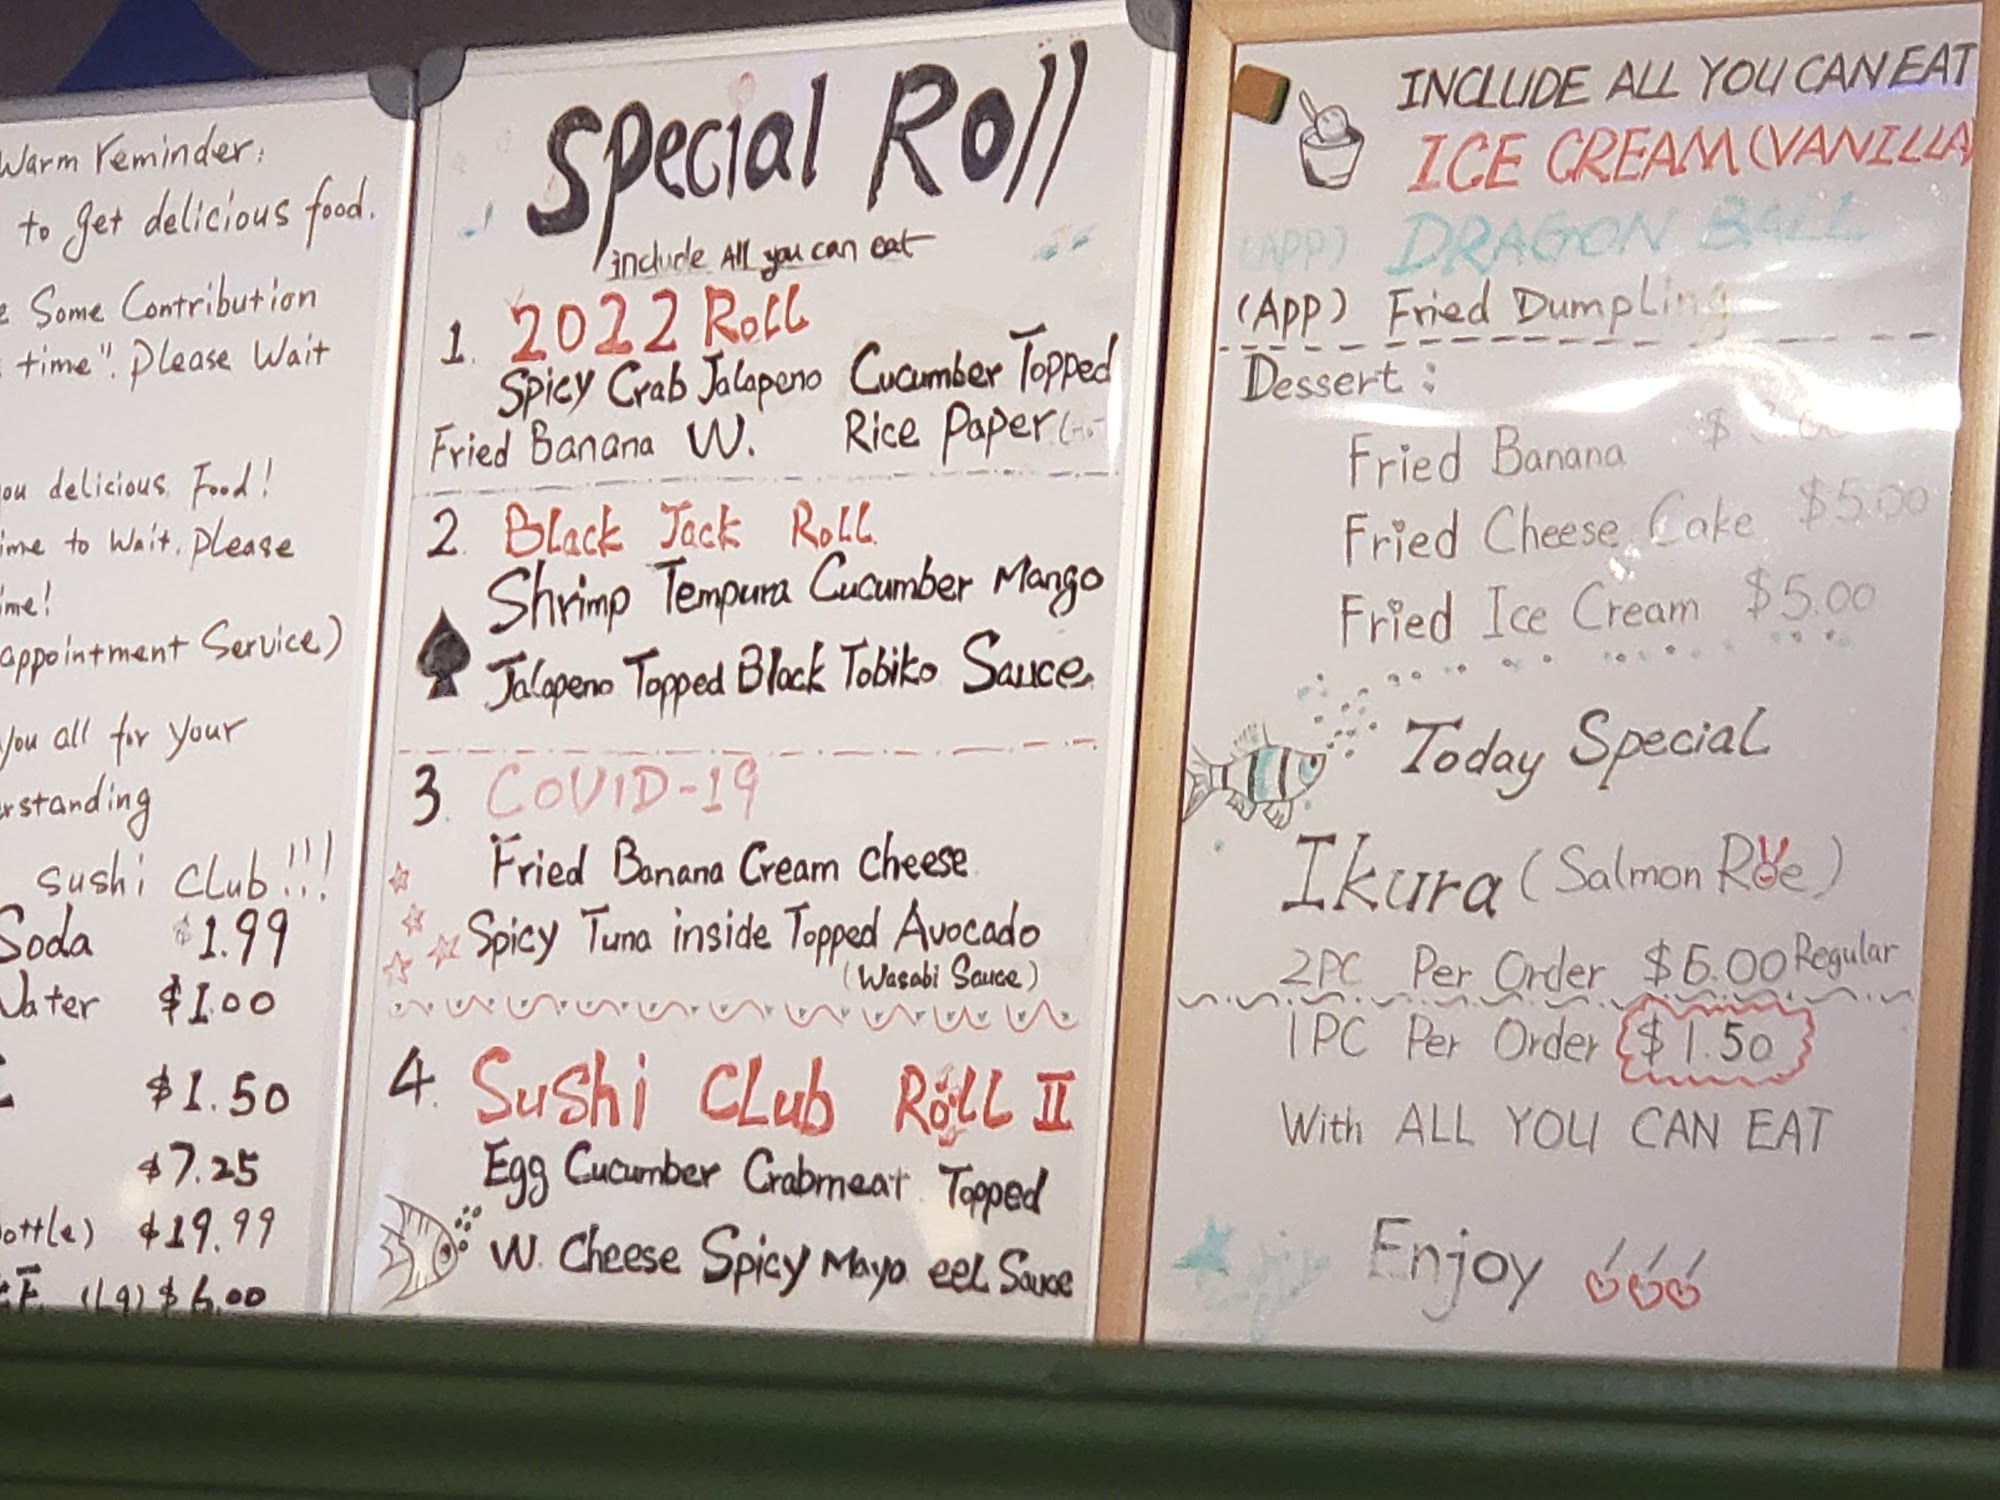 Warm reminder:
to get delicious food.
Some Contribution
time". Please Wait
delicious Food!
to wait. Please
appointment Service)
you all for your
Sushi Club!!!
Soda $1.99
Water $1.00
$1.50
$7.25
$19.99
(Lg) $6.00
Special Roll
include All you can eat
1. 2022 Roll
Spicy Crab Jalapeno Cucumber Topped
Fried Banana W. Rice Paper
2. Black Jack Roll
Shrimp Tempura Cucumber Mango
Jalapeno Topped Black Tobiko Sauce
3. COVID-19
Fried Banana Cream Cheese
Spicy Tuna inside Topped Avocado
(Wasabi Sauce)
4. Sushi Club Roll II
Egg Cucumber Crabmeat Topped
W. Cheese Spicy Mayo eel Sauce
INCLUDE ALL YOU CAN EAT
ICE CREAM (VANILLA)
(APP) DRAGON BALL
(APP) Fried Dumpling
Dessert:
Fried Banana
Fried Cheese Cake $5.00
Fried Ice Cream $5.00
Today Special
Ikura (Salmon Roe)
2PC Per Order $6.00 Regular
1PC Per Order $1.50
With ALL YOU CAN EAT
Enjoy